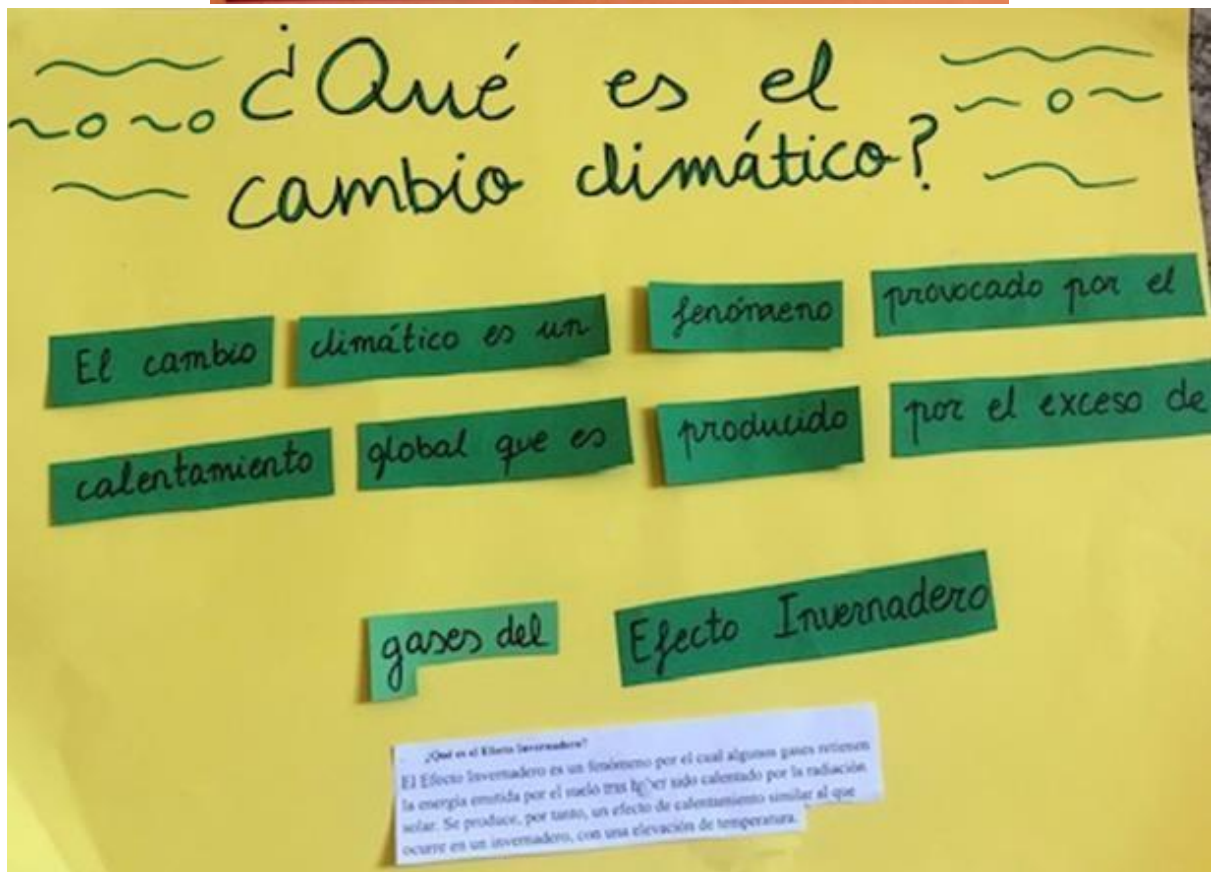 ¿Qué es el
cambio climático?
El cambio climático es un fenómeno provocado por el
calentamiento global que es producido por el exceso de
gases del Efecto Invernadero
¿Qué es el Efecto Invernadero?
El Efecto Invernadero es un fenómeno por el cual algunos gases retienen
la energía emitida por el suelo tras haber sido calentado por la radiación
solar. Se produce, por tanto, un efecto de calentamiento similar al que
ocurre en un invernadero, con una elevación de temperatura.